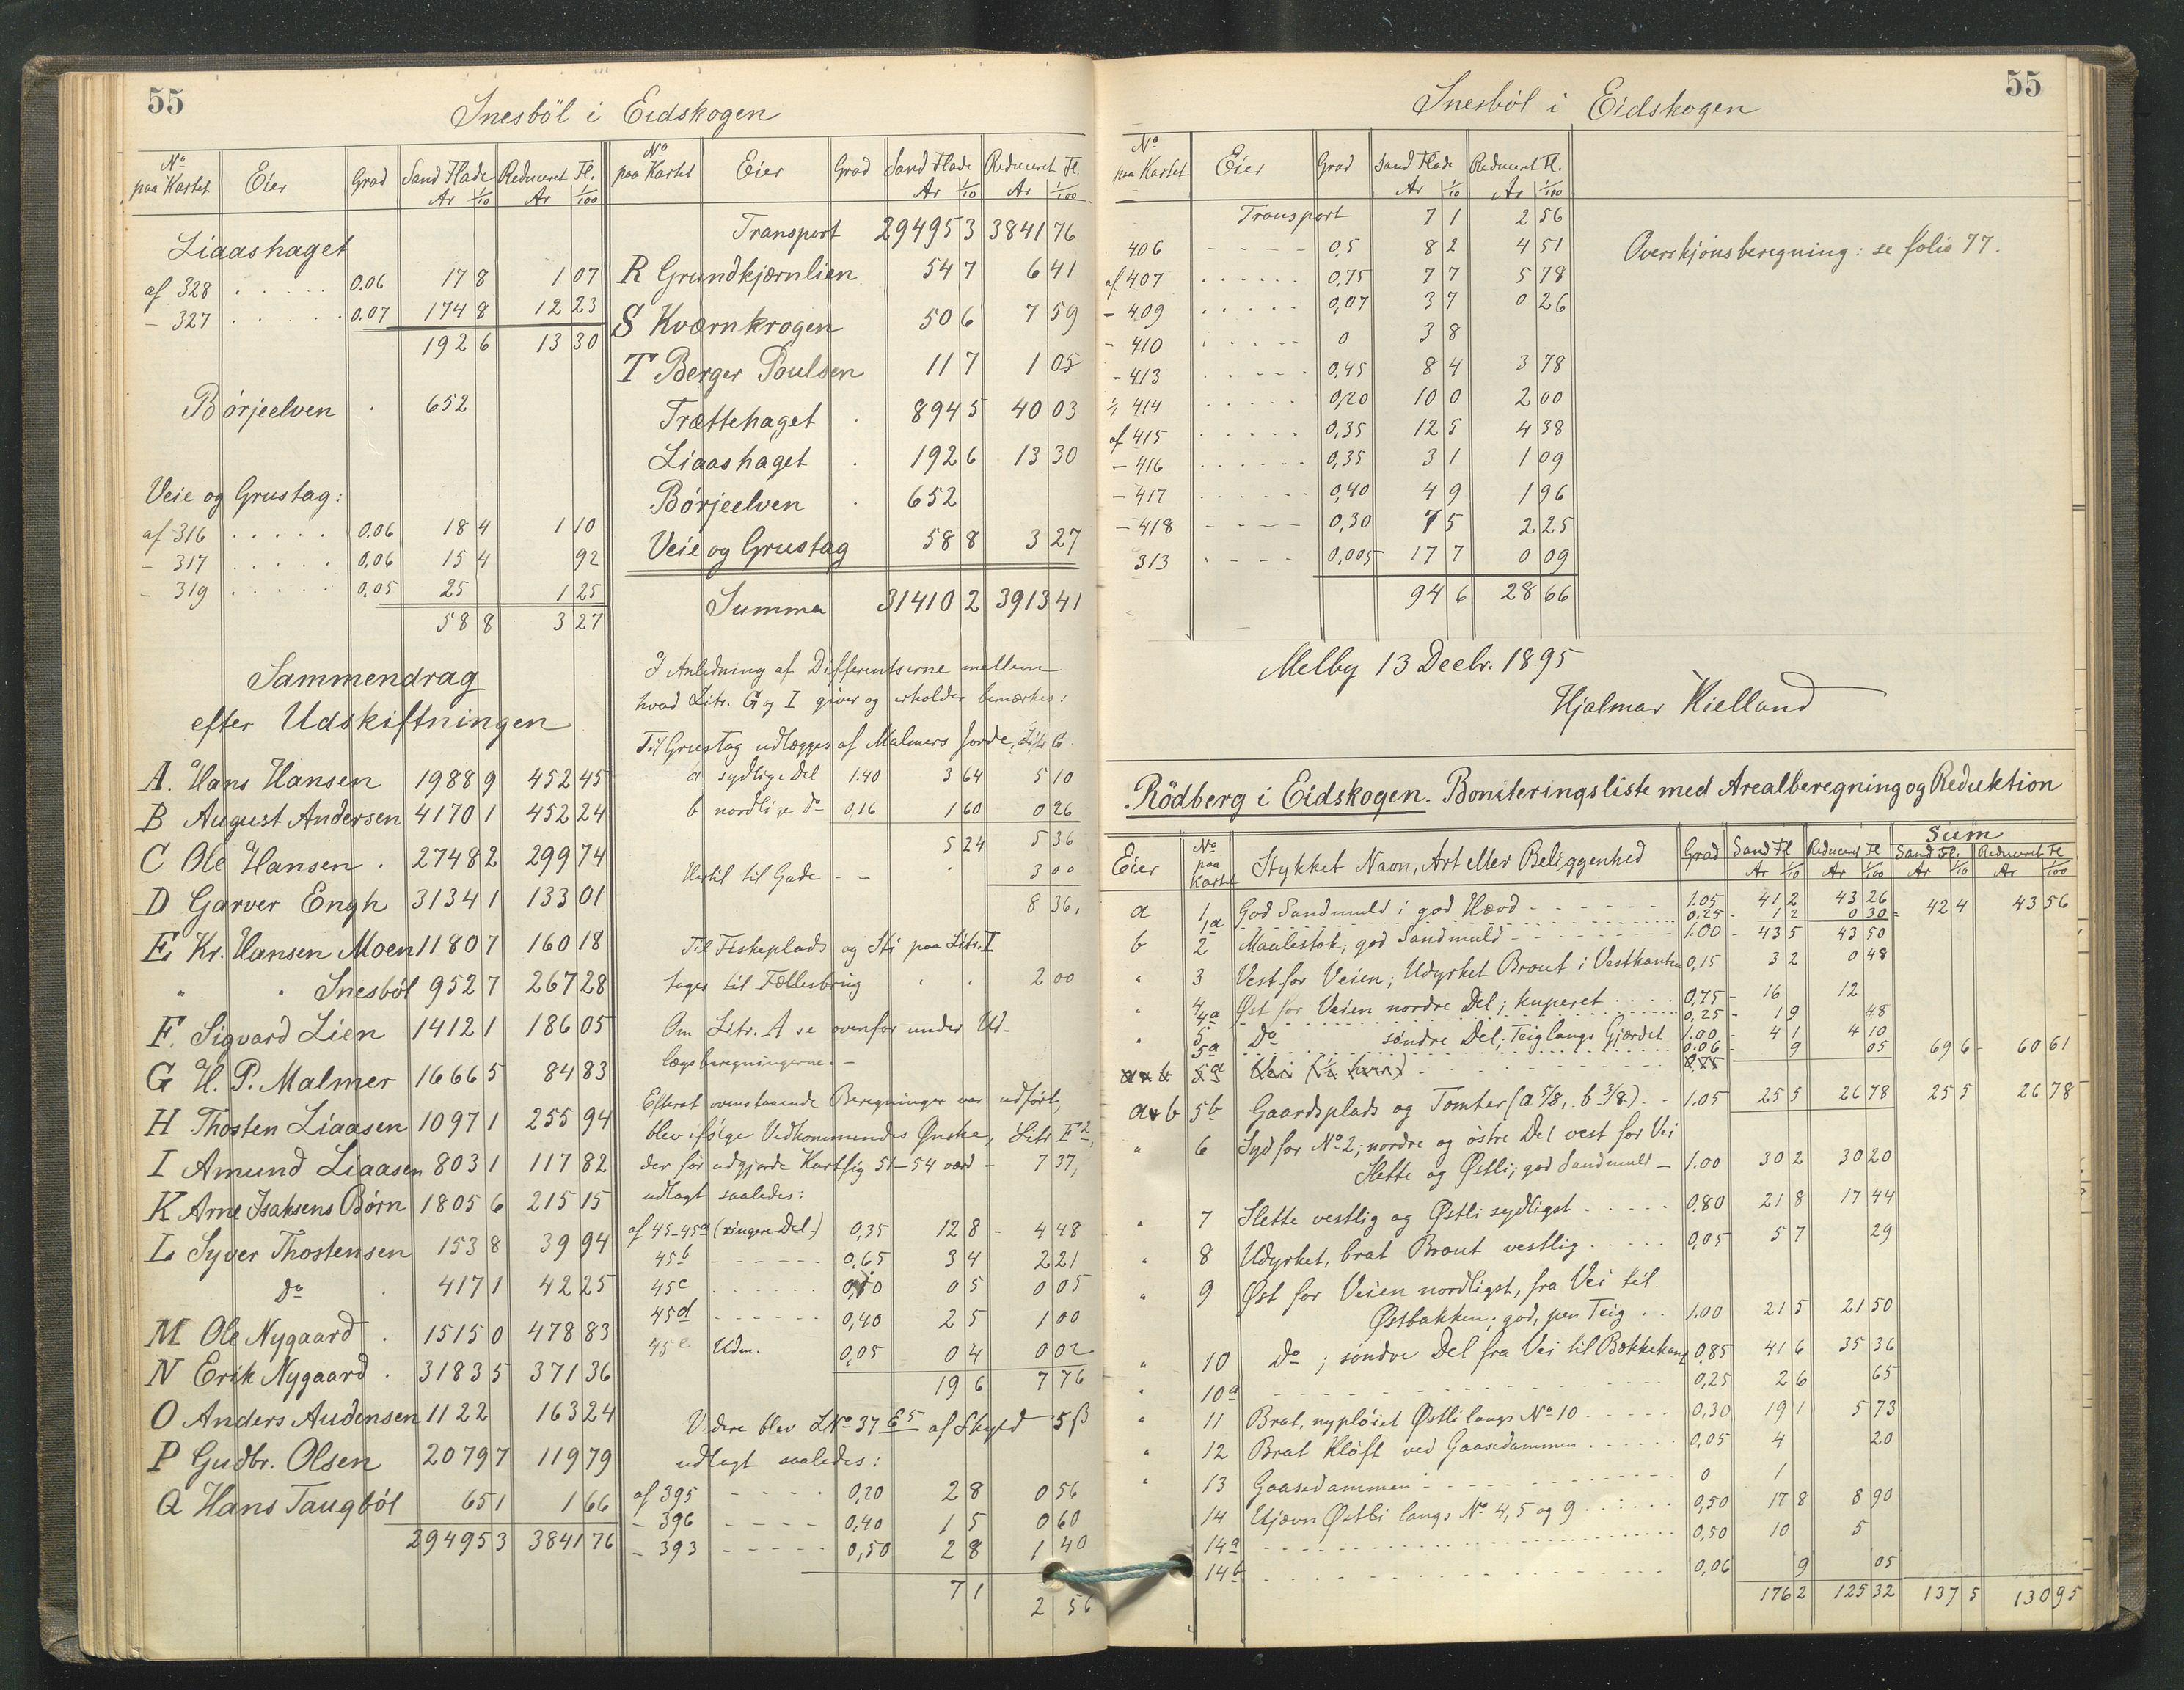 55
Snesböl i Eidskogen
No paa Kartet Eier Grad Sand Flade Ar 1/10 Reduceret Fl. Ar 1/100
Liaashaget
af 328 . . . . . 0.06 17 8 1 07
- 327 . . . . . 0.07 174 8 12 23
192 6 13 30
Börjeelven . 652
Veie og Grustag:
af 316 . . . . . 0.06 18 4 1 10
- 317 . . . . . 0,06 15 4 92
- 319 . . . . . 0,05 25 1 25
58 8 3 27
Sammendrag
efter Udskiftningen
A. Hans Hansen 1988 9 452 45
B August Andersen 4170 1 452 24
C Ole Hansen . 2748 2 299 74
D Garver Engh 3134 1 133 01
E Kr. Hansen Moen 1180 7 160 18
" " Snesböl 952 7 267 28
F. Sigvard Lien 1412 1 186 05
G H. P. Malmer 1666 5 84 83
H Thosten Liaasen 1097 1 255 94
I Amund Liaasen 803 1 117 82
K Arne Isaksens Börn 1805 6 215 15
L Syver Thostensen 153 8 39 94
Do . 417 1 42 25
M Ole Nygaard . 1515 0 478 83
N Erik Nygaard . 3183 5 371 36
O Anders Audensen 1122 163 24
P Gudbr. Olsen 2079 7 119 79
Q Hans Taugböl 65 1 1 66
29495 3 3841 76
No paa Kartet Eier Grad Sand Flade Ar 1/10 Reduceret Fl. Ar 1/100
Transport 29495 3 3841 76
R Grundkjærnlien 54 7 6 41
S Kværnkrogen 50 6 7 59
T Berger Poulsen 11 7 1 05
Trættehaget . 894 5 40 03
Liaashaget . 192 6 13 30
Börjeelven . 652
Veie og Grustag 58 8 3 27
Summa 31410 2 3913 41
I Anledning af Differentserne mellem
hvad Litr. G og I giver og erholder bemærkes:
Til Grustag udlægges af Malmers Jorde, Litr G.
a sydlige Del 1.40 3 64 5 10
b nordlige do 0,16 1 60 0 26
5 24 5 36
Hertil til Gade - - . 3 00
8 36,
Til Fiskeplads og Sti paa Litr. I
tages til Fællesbrug . . 2 00
Om Litr. A se ovenfor under Ud-
lægsberegningerne. -
Efterat ovenstaaende Beregninger var udfört,
blev ifölge Vedkommendes Ønske, Litr F2,
der för udgjorde Kartfig 51-54 værd - 7 37,
udlagt saaledes:
af 45-45a (ringere Del) 0,35 12 8 - 4 48
45b - - - - - - 0,65 3 4 2 21
45c . . . . . . 0,10 0 5 0 05
45d - - - - - - 0,40 2 5 1 00
45e Udm. 0,05 0 4 0 02
19 6 7 76
Videre blev LNo 37 af Skyld 5 β
udlagt saaledes:
af 395 - - - - - 0,20 2 8 0 56
- 396 - - - - - 0,40 1 5 0 60
- 393 - - - - - 0,50 2 8 1 40
7 1 2 56
55
Snesböl i Eidskogen
No paa Kartet Eier Grad Sand Flade Ar 1/10 Reduceret Fl. Ar 1/100
Transport 7 1 2 56
406 - - - - - 0,5 8 2 4 51
Overskjönsberegning: se folio 77.
af 407 . . . . . . 0,75 7 7 5 78
- 409 . . . . . 0,07 3 7 0 26
- 410 . . . - - 0 3 8
- 413 . . . . . 0,45 8 4 3 78
414 . . . . . 0,20 10 0 2 00
af 415 . . . . . 0,35 12 5 4 38
- 416 . . . . . . 0,35 3 1 1 09
- 417 . . . . . . 0,40 4 9 1 96
- 418 - - - - 0,30 7 5 2 25
313 . - - - 0,005 17 7 0 09
94 6 28 66
Melby 13 Decbr. 1895
Hjalmar Kielland
Rödberg i Eidskogen. Boniteringsliste med Arealberegning og Reduktion
Eier No paa Kartet Stykket Navn, Art eller Beliggenhed Grad Sand Fl Ar 1/10 Reduceret Fl Ar 1/100 Sum Sand Fl. Ar 1/10 Reduceret Fl Ar 1/100
a 1 God Sandmuld i god Hævd - - - - - 1.05 41 2 43 26
1a . . . . . 0.25 - 1 2 0 30 - 42 4 43 56
b 2 Maalestok; god Sandmuld - - - - - 1.00 - 43 5 43 50
" 3 Vest for Veien; Udyrket Braut i Vestkanten 0,15 3 2 0 48
" 4 Øst for Veien nordre Del; kuperet . . . . 0,75 - 16 12
4a . . . . . 0,25 - 1 9 48
" 5 Do söndre Del; Teig langs Gjærdet 1.00 - 4 1 4 10
5a . . . . . 0.06 - 9 05 69 6 - 60 61
a & b 5b Gaardsplads og Tomter (a 5/8, b 3/8) . - 1.05 25 5 26 78 25 5 26 78
" 6 Syd for No 2; nordre og östre Del vest for Vei
Slette og Østli; god Sandmuld - 1.00 30 2 30 20
" 7 Slette vestlig og Østli sydligst . . . . . 0,80 21 8 17 44
" 8 Udyrket, brat Braut vestlig . . . . . 0,05 5 7 29
" 9 Øst for Veien nordligst, fra Vei til
Østbakken; god, pen Teig . . 1.00 21 5 21 50
" 10 Do ; söndre Del fra Vei til Bækkekant 0,85 41 6 35 36
" 10a - - - - - 0,25 2 6 65
" 11 Brat, nyplöiet Østli langs No 10 - - - - - 0,30 19 1 5 73
" 12 Brat Klöft ved Gaasedammen . . . . . . 0,05 4 20
" 13 Gaasedammen - - - - - 0 1
14 Ujævn Østli langs No 4, 5 og 9 . . . . . 0,50 17 8 8 90
14a - - - - - 0,50 10 5
14b . . . . . 0,06 9 05
176 2 125 32 137 5 130 95